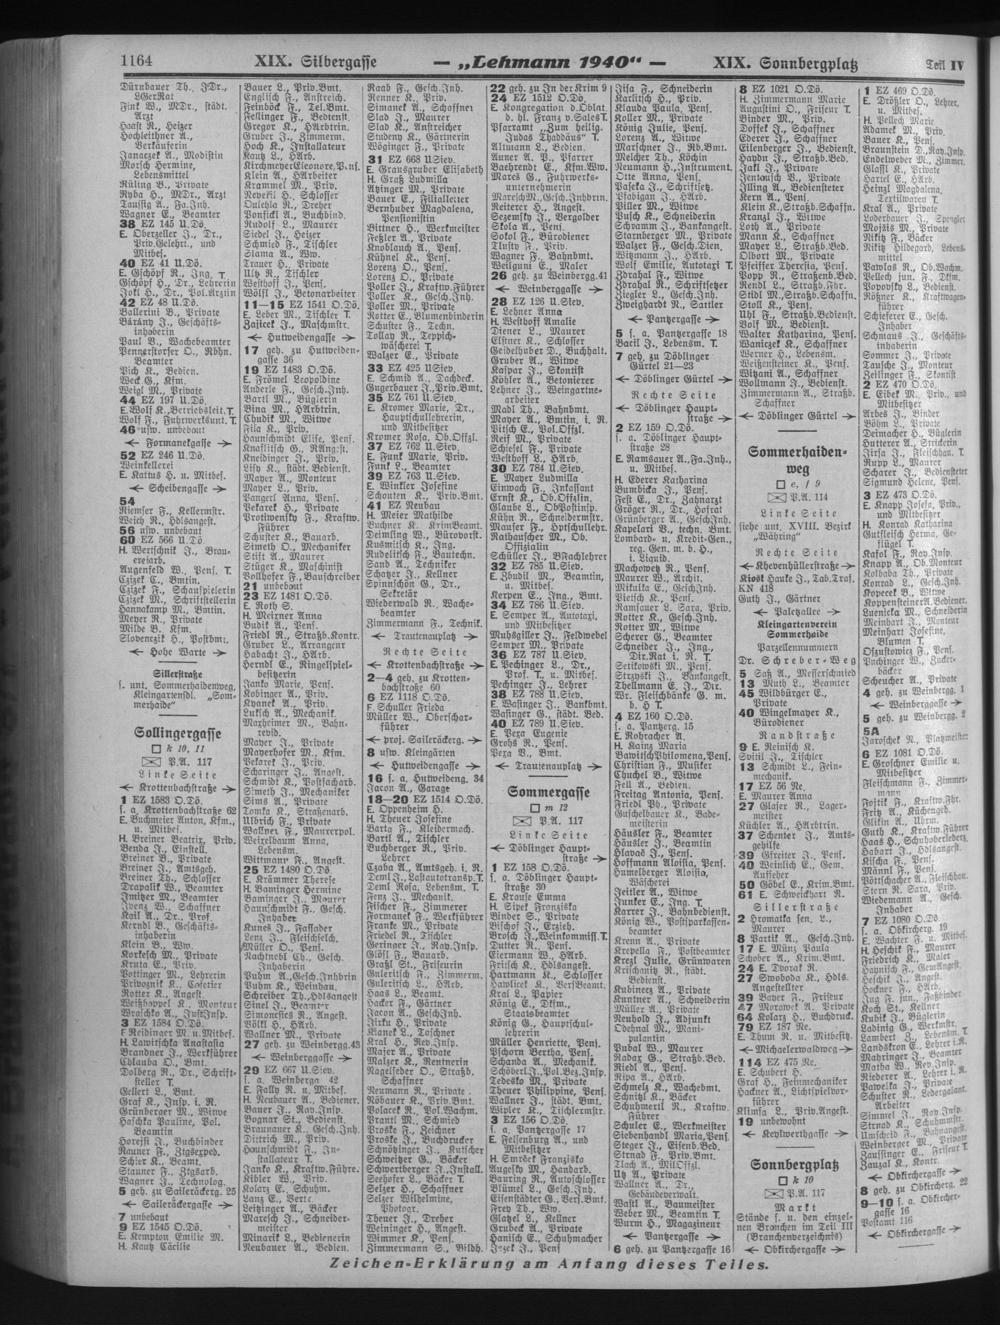 1164
XIX. Silbergasse
— „Lehmann 1940“ —
XIX. Sonnbergplatz
Teil IV
Dürnbauer Th. JDr.,
LGerRat
Fink W., MDr., städt.
Arzt
Haast R., Heizer
Hochleithner A.,
Verkäuferin
Janaczek A., Modistin
Morsch Hermine,
Lebensmittel
Rüling B., Private
Ryba H., MDr., Arzt
Taussig A., Fa.Inh.
Wagner E., Beamter
38 EZ 145 U.Dö.
E. Oberzeller J., Dr.,
Priv.Gelehrt., und
Mitbes.
40 EZ 41 U.Dö.
E. Gschöpf R., Ing. T.
Gschöpf H., Dr., Lehrerin
Jokl H., Dr., Pol.Arztin
42 EZ 48 U.Dö.
Ballerini B., Private
Bárány J., Geschäfts-
inhaberin
Paul B., Wachebeamter
Pengzstorfer O., Rbhn.
Beamter
Pich K., Bedien.
Weck G., Kfm.
Weigl M., Private
44 EZ 197 U.Dö.
E. Wolf K., Betriebsleit. T.
Wolf F., Fuhrwerksunt. T.
46 usw. unbebaut
← Formanekgasse →
52 EZ 246 U.Dö.
Weinkellerei
E. Kattus H. u. Mitbes.
← Scheibengasse →
54
Riemser F., Kellermstr.
Weich R., Hdlsangest.
56 usw. unbebaut
60 EZ 566 U.Dö.
H. Wertschnik J., Brau-
ereiarb.
Augenfeld W., Pens. T.
Czizek E., Bmtin.
Czizek F., Schauspielerin
Czizek M., Schriftstellerin
Hannakamp M., Bmtin.
Meyer R., Private
Milde B. Kfm.
Slovenezik H., Postbmt.
← Hohe Warte →
Sillerstraße
s. unt. Sommerhaidenweg,
Kleingartensdl. „Som-
merhaide“
Sollingergasse
□ k 10, 11
P.A. 117
Linke Seite
← Krottenbachstraße →
1 EZ 1583 O.Dö.
s. a. Krottenbachstraße 62
E. Buchmeier Anton, Kfm.,
u. Mitbes.
H. Breiner Beatrix, Priv.
Benda J., Einstell.
Breiner B., Private
Breiner J., Amtsgeh.
Breiner Th., Schlosser
Drapalik W., Beamter
Jmiher M., Beamter
Jwenz A., Schaffner
Kail A., Dr., Prof.
Kerndl B., Geschäfts-
inhaberin
Klein B., Ww.
Korkesch M., Private
Kruta E., Priv.
Pottinger M., Lehrerin
Privoznik K., Cafetier
Rotter K., Angest.
Weißhappel K., Monteur
Wraschko A., JustInsp.
3 EZ 1584 O.Dö.
E Reidinger M. u. Mitbes.
H. Lawitschka Anastasia
Brandner J., Werkführer
Chlauba O., Bmt.
Dolberg R., Dr., Schrift-
steller T.
Gellert L., Bmt.
Graf K., Insp. i. R.
Grünberger M., Witwe
Haschka Pauline, Pol.
Beamtin
Horejsi J., Buchbinder
Rauner F., Ztgsexped.
Schier K., Beamt.
Stauner F., Ztgsarb.
Wagner J., Technolog.
5 geh. zu Saileräckerg. 25
← Saileräckergasse →
7 unbebaut
9 EZ 1545 O.Dö.
E. Kempton Emilie M.
H. Kautz Cäcilie
Bauer L., Priv.Bmt.
Englisch F., Anstreich.
Feinböck F., Tel.Bmt.
Fellinger F., Bedienst.
Gregor K., HArbtrin.
Gruber J., Zimmerm.
Hoch K., Installateur
Kautz L., HArb.
Kirchmeyer Eleonore, Pens.
Klein A., HArbeiter
Krammel M., Priv.
Nevefil H., Schlosser
Oulehla R., Dreher
Ponsickl A., Buchbind.
Rudolf L., Maurer
Seidel J., Heizer
Schmied F., Tischler
Slama A., Ww.
Traver H., Private
Ulz R., Tischler
Westhoff J., Pens.
Wölfl J., Betonarbeiter
11–15 EZ 1541 O.Dö.
E. Leber M., Tischler T.
Zajicek J., Maschmstr.
← Hutweidengasse →
17 geh. zu Hutweiden-
gasse 36
19 EZ 1483 O.Dö.
E. Frömel Leopoldine
Anderle F., Gesch.Inh.
Bartl M., Büglerin
Bina M., HArbtrin.
Chudik M., Witwe
Fila K., Priv.
Haunschmidt Elise, Pens.
Knaflitsch G., RAngst.
Kneidinger J., Priv.
Lisy K., städt. Bedienst.
Mayer A., Monteur
Mayer L., Priv.
Pangerl Anna, Pens.
Pekarek H., Private
Protiwensky F., Kraftw.
Führer
Schuster K., Bauarb.
Simeth O., Mechaniker
Stift A., Maurer
Stüger K., Maschinist
Vollhofer F., Bauschreiber
21 unbebaut
23 EZ 1481 O.Dö.
E. Roth S.
H. Meirner Anna
Budik A., Pens.
Friedl R., Straßb.Kontr.
Gruber L., Arrangeur
Habacht J., HArb.
Herndl E., Ringelspiel-
besitzerin
Janko Marie, Pens.
Kobinger A., Priv.
Kyanek A., Priv.
Luksch A., Mechanik.
Marheimer M., Bahn-
revid.
Mayer J., Private
Mayerhofer M., Kfm.
Pekarek J., Priv.
Scharinger J., Angest.
Schmidt K., Postfacharb.
Simeth J., Mechaniker
Sims A., Private
Tomka K., Straßenarb.
Ulbrich F., Private
Wallner F., Maurerpol.
Wetzelbaum Anna,
Lebensm.
Wittmann F., Angest.
25 EZ 1480 O.Dö.
E. Krämmer Therese
H. Baminger Hermine
Baminger J., Maurer
Haunschmidt F., Gesch.
Inhaber
Kunes J., Fassader
Lenz J., Fleischselch.
Müller O., Pens.
Nachtnebl Th., Gesch.
Inhaberin
Puhm A., Gesch.Inhbrin
Puhm K., Weinbau.
Schreiber Th., Hdlsangest
Sinel J., Beamter
Simonesics R., Angest.
Vöktl H., HArb.
Wallner M., Private
27 geh. zu Weinbergg. 43
← Weinberggasse →
29 EZ 667 U.Siev.
s. a. Weinberga 42
E. Fally R. u. Mitbes.
H. Neubauer A., Bediener.
Bauer J., Rev.Insp.
Bognar St., Bedienst.
Braunauer K., Gesch.Inh.
Dittrich M., Priv.
Haunschmidt F., In-
stallateur T.
Janko K., Kraftw.Führe.
Kibler W., Priv.
Kolarz C., Schuhm.
Lenz E., Vertr.
Leitzinger A., Bäcker
Marsch J., Schneider-
meister
Minarik L., Bedienerin
Neubauer A., Bedien.
Raab F., Gesch.Inh.
Renner K., Priv.
Simanek A., Schaffner
Slad J., Maurer
Slad K., Anstreicher
Studeny K., Gärtnerin
Wöginger F., Private
31 EZ 668 U.Siev.
E. Grausgruber Elisabeth
H. Graß Ludmilla
Atzinger M., Private
Bauer C., Filialleiter
Bernhuber Magdalena,
Pensionistin
Bittner H., Werkmeister
Fetzler A., Private
Knoblauch A., Pens.
Kühnel K., Pens.
Lorenz O., Pens.
Lorenz O., Private
Poller J., Kraftw.Führer
Poller K., Gesch.Inh.
Poller M., Private
Rotter C., Blumenbinderin
Schuster F., Techn.
Tollay R., Teppich-
wäscherei T.
Walzer E., Private
33 EZ 425 U.Siev.
E. Schmid A., Dachdeck.
Gugerbauer J., Priv.Bmt.
35 EZ 761 U.Siev.
E. Kromer Marie, Dr.,
Hauptschullehrerin,
und Mitbesitzer
Kromer Rosa, Ob.Offzl.
37 EZ 762 U.Siev.
E. Funk Marie, Priv.
Funk L., Beamter
39 EZ 763 U.Siev.
E. Winkler Josefine
Schouten K., Priv.Bmt.
41 EZ Neubau
H. Meier Mathilde
Buchner K., KrimBeamt.
Deimling W., Bürovorst.
Kusmitsch K., Ing.
Rudelitsch F., Bautechn.
Sand A., Techniker
Schatzer J., Kellner
Spinnschön G., Dr.,
Sekretär
Wiederwald R., Wache-
beamter
Zimmermann F., Technik.
← Trautenauplatz →
Rechte Seite
← Krottenbachstraße →
2–4 geh. zu Krotten-
bachstraße 60
6 EZ 1118 O.Dö.
E. Schuller Frieda
Müller W., Oberschar-
führer
← proj. Saileräckerg. →
8 usw. Kleingärten
← Hutweidengasse →
16 s. a. Hutweideng. 34
Jacon A., Garage
18–20 EZ 1514 O.Dö.
E. Oppenheim H.
H. Theuer Josefine
Barta F., Kleidermach.
Bartl A., Tischler
Buchberger R., Priv.
Lehrer
Czaba A., Amtsgeh. i. R.
Deml J., Lastautotransp. T.
Deml Rosa, Lebensm. T.
Fenz J., Mechanik.
Fischer F., Zimmerer
Formanek F., Werkführer
Franke M., Private
Friedel K., Tischler
Geringer J., Rav.Insp.
Glösl F., Bauarb.
Graßl St., Friseurin
Guleritsch F., Zimmerm.
Guleritsch L., HArb.
Haas L., Beamt.
Hacker F., Gärtner
Jacon A., GeschJnh.
Jirku H., Private
Klanek L., Taschner
Kral H., Rev.Insp.
Majer A., Private
Majer K., Rentnerin
Nagelseder O., Straßb.
Schaffner
Neumann R., Private
Nöbauer K., Priv.Bmt.
Polacek R., Pol.Wachm.
Prantl M., Schmied
Proske F., Zeichner
Proske J., Buchdrucker
Schnötzinger J., Kutscher
Schweitzer G., Bäcker
Schwertberger J., Install.
Seehofer L., Bäcker T.
Selzer H., Schaffner
Selzer Wilhelmine,
Photogr.
Theuer J., Dreher
Weininger H., Angest.
Wimmer K., Pens.
Zimmermann S., Bildh.
22 geh. zu In der Krim 9
24 EZ 1512 O.Dö.
E. Kongregation d. Oblat
d. hl. Franz v. Sales T.
Pfarramt „Zum heilig.
Judas Thaddäus“ T.
Altmann L., Bedien.
Auner A. P., Pfarrer
Baehrendt E., Kfm.Ww.
Mares G., Fuhrwerks-
unternehmerin
Maresch M., Gesch.Inhbrin.
Reiterer H., Angest.
Sezemsky J., Vergolder
Skola A., Pens.
Sokol F., Bürodiener
Tlustv F., Priv.
Wagner F., Bahnbmt.
Weilguni E., Maler
26 geh. zu Weinbergg. 41
← Weinberggasse →
28 EZ 126 U.Siev.
E. Lehner Anna
H. Westhoff Amalie
Diener L., Maurer
Elsner K., Schlosser
Geidelhuber D., Buchhalt.
Gruber A., Witwe
Kaspar J., Skontist
Köhler A., Betonierer
Lehner J., Weingartne-
arbeiter
Madl Th., Bahnbmt.
Mayer A., Bmtin, i. R.
Pitsch E., Pol.Offzl.
Reif M., Private
Schiefel F., Private
Westhoff L., HArb.
30 EZ 784 U.Siev.
E. Mayer Ludmilla
Einwach F., Inkassant
Ernst K., Ob.Offzlin
Glaube L., ObPostinsp.
Kühn R., Schneidermstr.
Mauser F., Hptschullehr.
Rathauscher M., Ob.
Offizialin
Schüller J., BFachlehrer
32 EZ 785 U.Siev.
E. Zbudil M., Beamtin,
u. Mitbes.
Kerpen E., Ing., Bmt.
34 EZ 786 U.Siev.
E. Semper A., Autotaxi,
und Mitbesitzer
Muhsgiller J., Feldwebel
Semper M., Private
36 EZ 787 U.Siev.
E. Pechinger L., Dr.,
Prof. T., u. Mitbes.
Pechinger J., Lehrer
38 EZ 788 U.Siev.
E. Wafinger J., Bankbmt.
Wafinger G., städt. Bed.
40 EZ 789 U.Siev.
E. Peza Eugenie
Grohs R., Pens.
Peza B., Bmt.
← Trautenauplatz →
Sommergasse
□ m 12
P.A. 117
Linke Seite
← Döblinger Haupt-
straße →
1 EZ 158 O.Dö.
s. a. Döblinger Haupt-
straße 30
E. Krause Emma
H. Sipek Franziska
Binder S., Private
Bischof J., Erzieh.
Brosch J., Weinkommiss. T.
Dutter R., Pens.
Eiermann W., HArb.
Frisch K., Hdlsangest.
Hartmann K., Schlosser
Hawlicek K., VersBeamt.
Kral L., Papier
König G., Dkfm.,
Staatsbeamter
König G., Hauptschul-
lehrerin
Müller Henriette, Pens.
Pschorn Bertha, Pens.
Schanda A., Mechanik.
Schöberl J., Pol.Bez.Insp.
Tedesko M., Private
Theuer Philippine, Pens.
Wallner J., städt. Bmt.
Wipler K., Tischlermstr.
3 EZ 156 O.Dö.
s. a. Pantzergasse 17
E. Felsenburg A., und
Mitbesitzer
H. Smrcek Franziska
Augesky M., Handarb.
Bauring R., Autoschlosser
Blümel L., Gesch.Inh.
Eisenstädter G., Vers.Bmt.
Frey Th., Ww.
Glatzel L., Kellner
Grubeck A., Private
Hanisch E., Schuhmacher
Jezek J., Pens
Jisa F., Schneiderin
Karlitsch H., Priv.
Klauba Paula, Pens.
Koller M., Private
König Julie, Pens.
Lorenz A., Witwe
Marschner J., Rb.Bmt.
Melcher Th., Köchin
Neumann H., Instrument.
Otte Anna, Pens.
Paseka J., Schriftsetz.
Piller M., Witwe
Pusch K., Schneiderin
Schramm J., Bankangest.
Starnberger M., Private
Walzer F., Gesch.Dien.
Witzmann J., HArb.
Wolf Emilie, Autotaxi T.
Zdrahal F., Witwe
Zdrahal R., Schriftsetzer
Ziegler L., Gesch.Inh.
Zweighardt R., Sattler
← Pantzergasse →
5 s. a. Pantzergasse 18
Baril J., Lebensm. T.
7 geh. zu Döblinger
Gürtel 21–23
← Döblinger Gürtel →
Rechte Seite
← Döblinger Haupt-
straße →
2 EZ 159 O.Dö.
s. a. Döblinger Haupt-
straße 28
E. Ramsauer A., Fa.Inh.,
u. Mitbes.
H. Ederer Katharina
Bumbicka J., Pens.
Fest E., Dr., Zahnarzt
Gröger R., Dr., Hofrat
Grünberger A., Gesch.Inh
Kapelari B., techn. Bmt.
Lombard- u. Kredit-Ges.,
reg. Gen. m. b. H.,
i. Liquid.
Machowetz R., Pens.
Maurer W., Archit.
Mikulka E., Gesch.Inh.
Pieschl K., Pens.
Ramsauer L. Sara, Priv.
Rotter K., Gesch.Inh.
Rotter M., Witwe
Scherer G., Beamter
Schneider J., Ing.,
Dir.Rat i. R. T.
Serikowski M., Pens.
Strzyski J., Bankangest.
Thellmann E. J., Dir.
Wr. Fleischbänke G. m.
b. H T.
4 EZ 160 O.Dö.
s. a. Pantzerg. 15
E. Rohracher A.
H. Kainz Maria
Bawitsch Philomena, Pens.
Christian F., Musiker
Chuchel B., Witwe
Fell A., Bedien.
Freitag Antonia, Pens.
Friedl Ph., Private
Guschelbauer K., Bade-
meisterin
Häusler F., Beamter
Häusler J., Beamtin
Hlavač J., Pens.
Hoffmann Aloisia, Pens.
Humelberger Aloisia,
Wäscherei
Jeitler A., Witwe
Junker E., Ing. T.
Karrer J., Bahnbedienst.
König W., Postsparkassen-
beamter
Krenn A., Private
Krepella F., Postbeamter
Krezl Julie, Grünwaren
Krischanitz R., städt.
Bedienst.
Kubinetz A., Private
Kuntner A., Schneiderin
Müller A., Private
Neuhold J., Adjunkt
Odehnal M., Mani-
pulantin
Pubal W., Maurer
Radax G., Straßb.Bed.
Riedl A., Pens.
Ripa A., HArb.
Schmelz K., Wachebmt.
Schnitzl K., Bäcker
Schuhmertl R., Kraftw.
Führer
Schuler C., Werkmeister
Siebenhandl Maria, Pens.
Steger J., Eisenb.Bed.
Strnad F., Priv.Bmt.
Tlach A., Mil.Offzl.
Utz A., Private
Wallner A., Dr.,
Gebäudeverwalt.
Wastl A., Baumeister
Weber M., Beamtin T.
Wurm H., Magazineur
← Pantzergasse →
6 geh. zu Pantzergasse 16
8 EZ 1021 O.Dö.
H. Zimmermann Marie
Augustini O., Friseur T.
Binder M., Priv.
Dossek J., Schaffner
Ederer J., Schaffner
Eilenberger J., Bedienst.
Haydn J., Straßb.Bed.
Jakl J., Private
Jentousch B., Private
Illing A., Bediensteter
Kern A., Pens.
Klein K., Straßb.Schaffn.
Kranzl J., Witwe
Loth A., Private
Mann K., Schaffner
Mayer L., Straßb.Bed.
Olbort M., Private
Pfeiffer Theresia, Pens.
Popp R., Straßenb.Bed.
Rendl L., Straßb.Fhr.
Stibl M., Straßb.Schaffn.
Stoll K., Pens.
Uhl F., Straßb.Bedienst.
Volf M., Bedienst.
Walter Katharina, Pens.
Waniczek K., Schaffner
Werner H., Lebensm.
Weißensteiner K., Pens.
Witzani A., Schaffner
Wollmann J., Bedienst.
Zimmermann A., Straßb.
Schaffner
← Döblinger Gürtel →
Sommerhaiden-
weg
□ e, f 9
P.A. 114
Linke Seite
siehe unt. XVIII. Bezirk
„Währing“
Rechte Seite
← Khevenhüllerstraße →
Kiosk Hauke J., Tab.Traf.
KN 418
Guth J., Gärtner
← Paletzallee →
Kleingartenverein
Sommerhaide
Parzellennummern
Dr. Schreber-Weg
5 Satz A., Messerschmied
13 Muth L., Beamter
45 Wildbürger C.,
Private
40 Wingelmayer K.,
Bürodiener
Randstraße
9 E. Reinisch K.
Spittl J., Tischler
13 Schmidt L., Fein-
mechanik.
17 EZ 56 Ne.
E. Maurer Anna
27 Glaser R., Lager-
meister
Küchler A., HArbtrin.
37 Schenter J., Amts-
gehilfe
39 Greiter J., Pens.
40 Weinlich E., Gem.
Aufseher
50 Göbel C., Krim.Bmt.
61 E. Schweickhart K.
Sillerstraße
2 Hromatka sen. L.,
Maurer
8 Partik A., Gesch.Inh.
17 E. Münz Paula
Schober A., Krim.Bmt.
24 E. Dvorak R.
27 Swoboda K., Hdls.
Angestellter
39 Bayer F., Friseur
47 Morawek A. Private
64 Kolarz H., Buchdruck.
79 EZ 187 Ne.
E. Thum R. u. Mitbes.
← Michaelerwaldweg →
114 EZ 475 Ne.
E. Schubert H.
Graf H., Feinmechaniker
Hackner A., Lichtspielvor-
führer
Klimsa L., Priv.Angest.
19 unbewohnt
← Keylwerthgasse →
Sonnbergplatz
□ k 10
P.A. 117
Markt
Stände s. u. den einzel-
nen Branchen im Teil III
(Branchenverzeichnis)
← Obkirchergasse →
1 EZ 469 O.Dö.
E. Drößler O., Lehrer,
u. Mitbes.
H. Pellech Marie
Adamek M., Priv.
Bauer K., Pens.
Braunstein D., Ray.Insp.
Endelweber M., Zimmer.
Glaßl K., Private
Hartel E., HArb.
Heinzl Magdalena,
Textilwaren T.
Kral A., Private
Loderbauer J., Spengler
Mojsis M., Private
Nikitz F., Bäcker
Nikitz Hildegard, Lebens-
mittel
Patolas R., Ob.Wachm.
Pellech jun. F., Dkfm.
Popovsky L., Bedienst.
Rößner K., Kraftwagen-
führer
Schieferer E., Gesch.
Inhaber
Schmaus J., Geschäfts-
inhaberin
Sommer J., Private
Tausche J., Monteur
Zeilinger F., Skontist
2 EZ 470 O.Dö.
E. Eibek M., Priv., und
Mitbesitzer
Arbes J., Binder
Böhm L., Private
Deimacher H., Büglerin
Hutterer A., Strickerin
Jirsa J., Fleischhau. T.
Rupp L., Maurer
Scharer J., Bediensteter
Sigmund Helene, Pens.
3 EZ 473 O.Dö.
E. Knapp Josefa, Priv.,
und Mitbesitzer
H. Konrad Katharina
Gutfleisch Herma, Ge-
flügel T.
Kafol F., Rav.Insp.
Knapp A., Ob.Monteur
Kolbaba Th., Private
Konrad L., Gesch.Inh.
Kopecek B., Witwe
Koppensteiner A., Bediener.
Luenicka M., Schneiderin
Meinhart J., Monteur
Meinhart Josefine,
Blumen T.
Oszustowicz F., Pens.
Puchinger W., Zucker-
bäcker
Scheucher A., Private
4 geh. zu Weinbergg. 1
← Weinberggasse →
5 geh. zu Weinbergg. 2
5A
Jaroschek R., Platzmeister
6 EZ 1081 O.Dö.
E. Groschner Emilie u.
Mitbesitzer
Fleischmann F., Zimmer-
mann
Fojtik F., Kraftw.Fhr.
Frech J., HArb.
Glisin A., Uhrm.
Guth K., Kraftw.Führer
Haas H., Schuhoberleder.
Habart J., Hdlsangest.
Kischa F., Pens.
Männl F., Pens.
Pörtschacher A., Fleischhau.
Stern R. Sara, Priv.
Wiedemann A., Gesch.
Inhaber
7 EZ 1080 O.Dö.
s. a. Obkircherg. 19
E. Wachter F. u. Mitbes.
H. Heschik F., Maurer
Friedrich K., Maler
Haynisch F., GemAngest.
Heschik F., Angest.
Hockner F., HArb.
Jug F. jun., Faßbinder
Koch St., Kellner
Kubik J., Büglerin
Ladinig G., Werkmstr.
Lambert L., Lebensm. T.
Landskron E., Lehrer i. R.
Mahringer J., Beamter
Matha N., Insp.
Riederer A., Lehrer i. R.
Pawelka J., Private
Schuster R., Ledergalant.
Arbeiter
Simmel J., Rav.Insp.
Strnad K., Schuhmmstr.
Umschrid F., Bahnangest.
Weinberger M., Private
Zausinger E., Friseur T.
Zauzal K., Kontr.
← Obkirchergasse →
8 geh. zu Obkircherg. 22
9–10 s. a. Obkircher-
gasse 16
Postamt 116
← Obkirchergasse →
Zeichen-Erklärung am Anfang dieses Teiles.